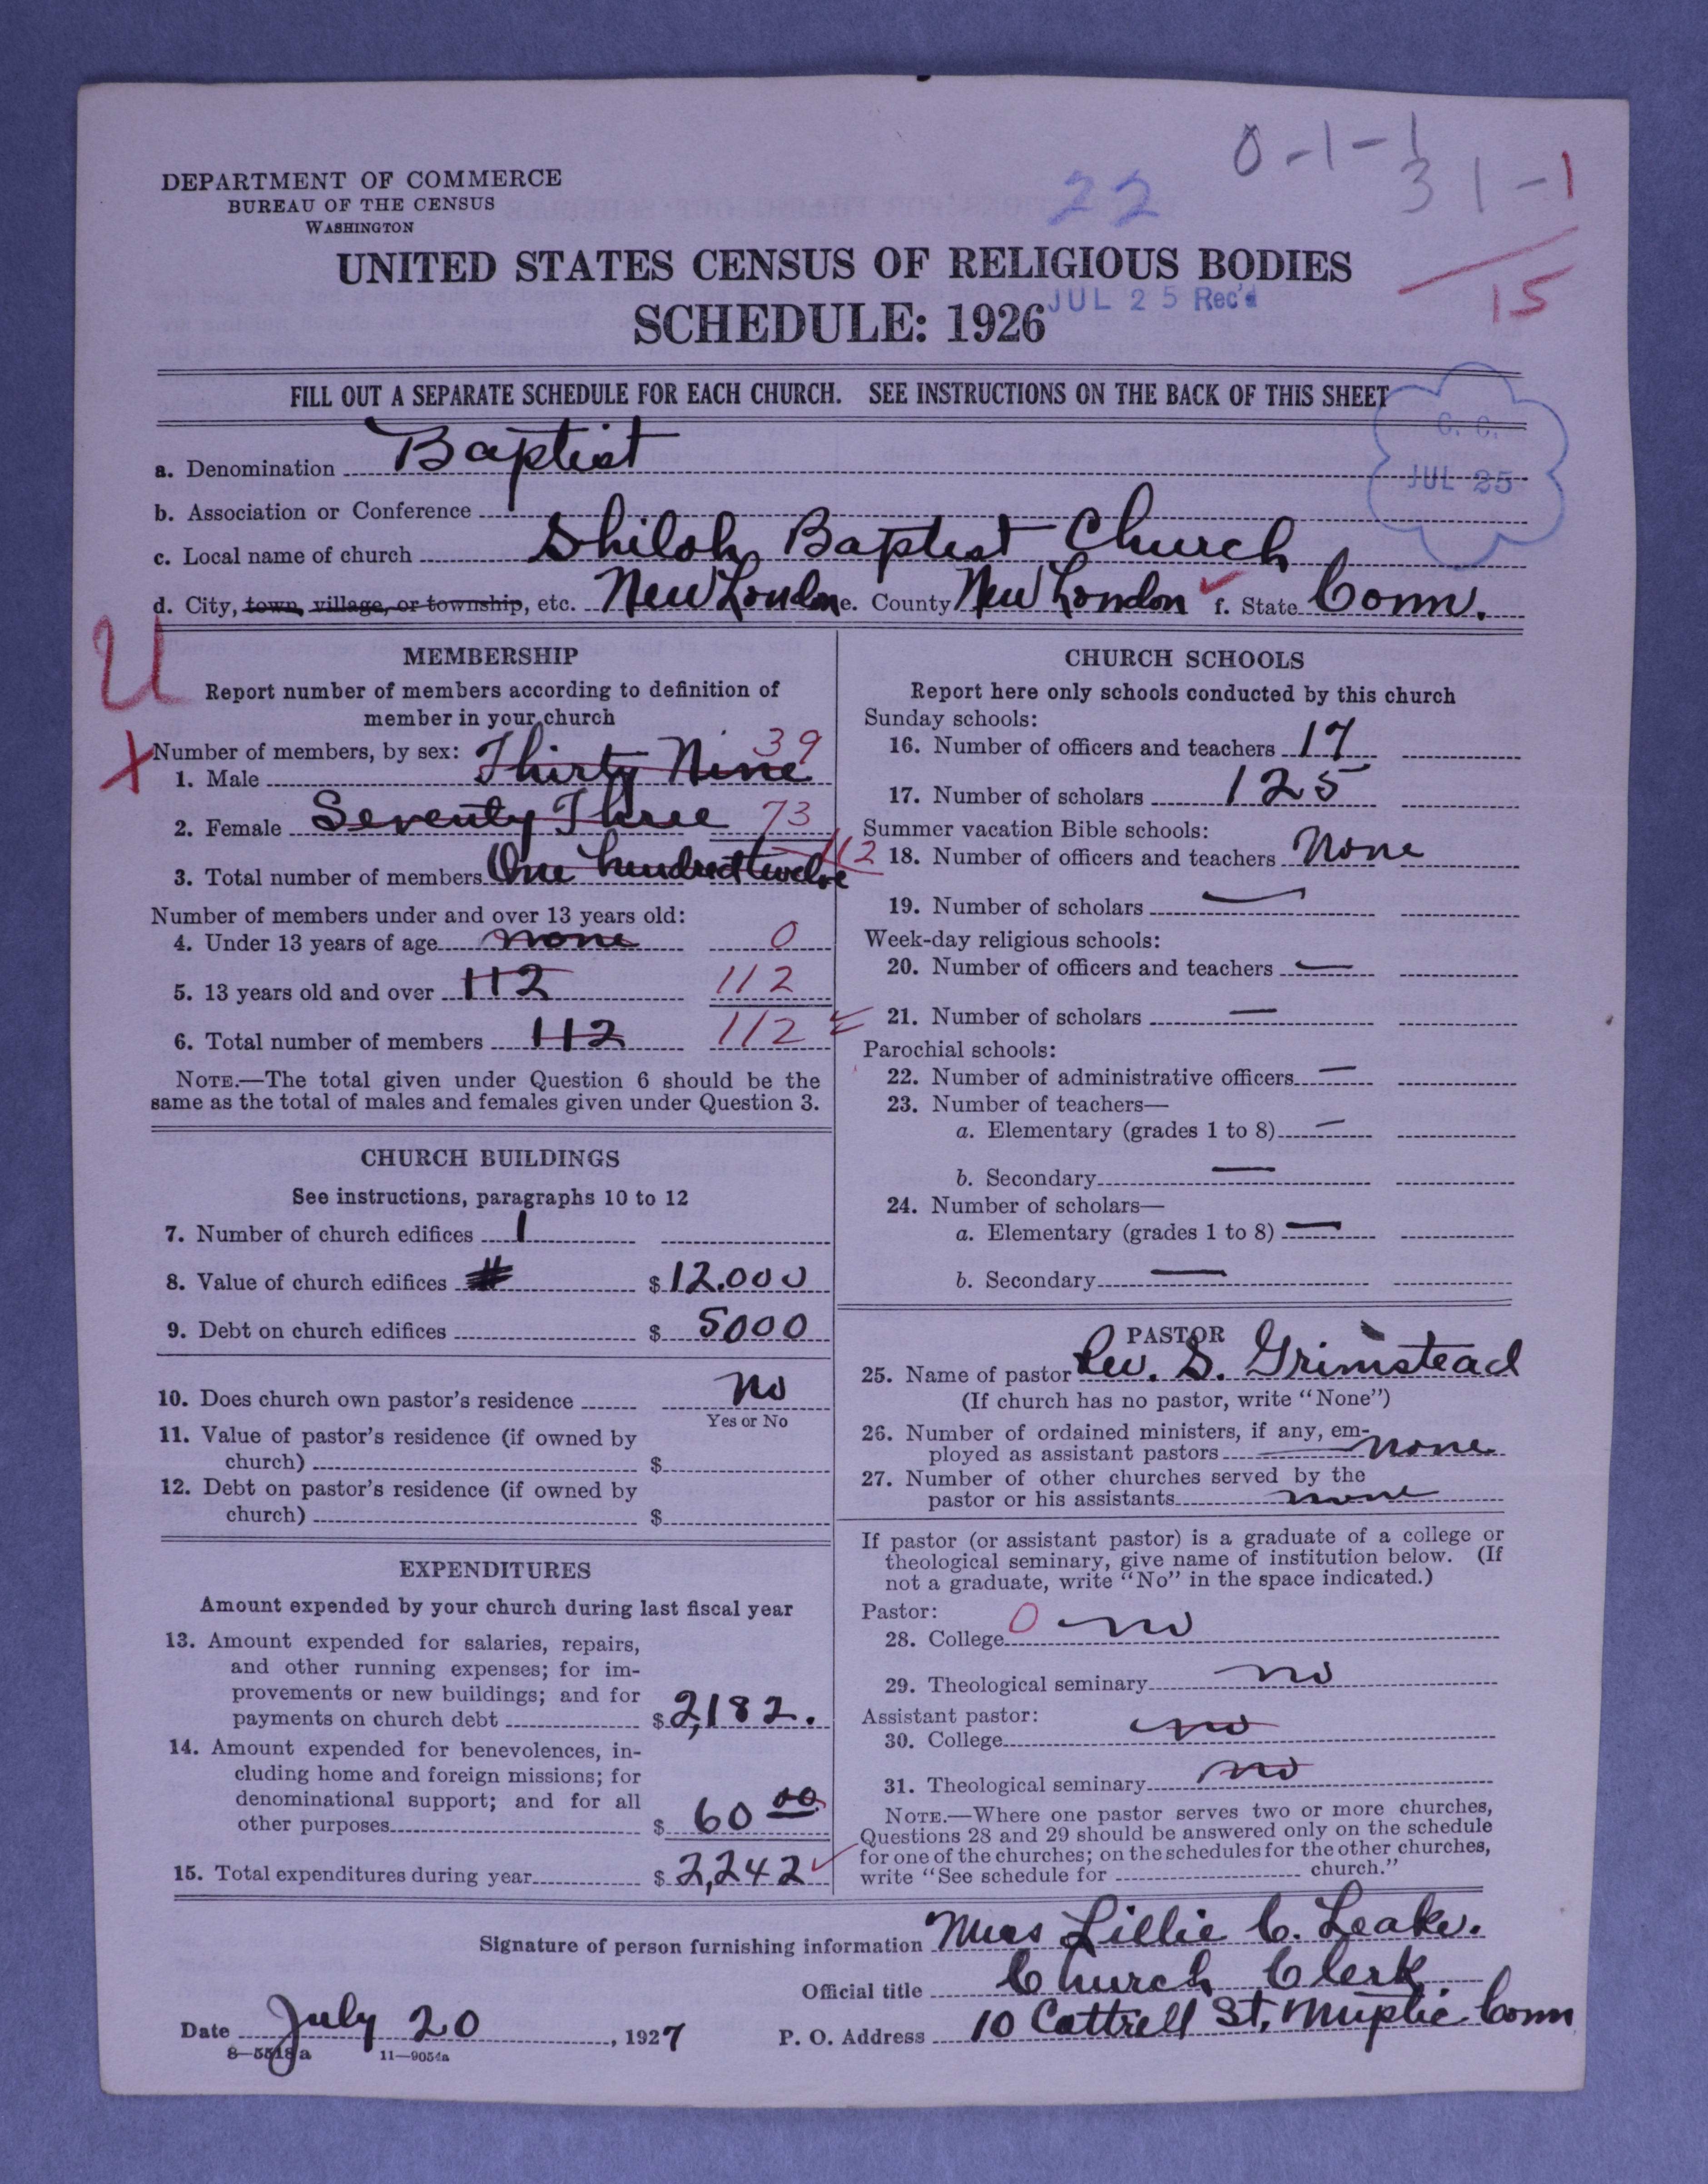 0-1-1
22
31-1
15
DEPARTMENT OF COMMERCE
BUREAU OF THE CENSUS
WASHINGTON
UNITED STATES CENSUS OF RELIGIOUS BODIES
SCHEDULE: 1926
JUL 25 Rec'd
FILL OUT A SEPARATE SCHEDULE FOR EACH CHURCH. SEE INSTRUCTIONS ON THE BACK OF THIS SHEET
C. C.
JUL 25
a. Denomination Baptist
b. Association or Conference
c. Local name of church Shiloh Baptist Church
d. City, town, village, or township, etc. New London e. County New London f. State Conn.
U
MEMBERSHIP
Report number of members according to definition of
member in your church
X
Number of members, by sex:
1. Male Thirty Nine 39
2. Female Seventy Three 73
3. Total number of members One hundred twelve 112
Number of members under and over 13 years old:
4. Under 13 years of age none 0
5. 13 years old and over 112 112
6. Total number of members 112 112
NOTE.—The total given under Question 6 should be the
same as the total of males and females given under Question 3.
CHURCH BUILDINGS
See instructions, paragraphs 10 to 12
7. Number of church edifices 1
8. Value of church edifices $ 12.000
9. Debt on church edifices $ 5000
10. Does church own pastor's residence No
Yes or No
11. Value of pastor's residence (if owned by
church) $
12. Debt on pastor's residence (if owned by
church) $
EXPENDITURES
Amount expended by your church during last fiscal year
13. Amount expended for salaries, repairs,
and other running expenses; for im-
provements or new buildings; and for
payments on church debt $ 2,182.
14. Amount expended for benevolences, in-
cluding home and foreign missions; for
denominational support; and for all
other purposes $ 60 00
15. Total expenditures during year $ 2,242
CHURCH SCHOOLS
Report here only schools conducted by this church
Sunday schools:
16. Number of officers and teachers 17
17. Number of scholars 125
Summer vacation Bible schools:
18. Number of officers and teachers None
19. Number of scholars —
Week-day religious schools:
20. Number of officers and teachers —
21. Number of scholars —
Parochial schools:
22. Number of administrative officers —
23. Number of teachers—
a. Elementary (grades 1 to 8) —
b. Secondary —
24. Number of scholars—
a. Elementary (grades 1 to 8) —
b. Secondary —
PASTOR
25. Name of pastor Rev. S. Grimstead
(If church has no pastor, write "None")
26. Number of ordained ministers, if any, em-
ployed as assistant pastors none
27. Number of other churches served by the
pastor or his assistants none
If pastor (or assistant pastor) is a graduate of a college or
theological seminary, give name of institution below. (If
not a graduate, write "No" in the space indicated.)
Pastor:
28. College 0 no
29. Theological seminary no
Assistant pastor:
30. College no
31. Theological seminary no
NOTE.—Where one pastor serves two or more churches,
Questions 28 and 29 should be answered only on the schedule
for one of the churches; on the schedules for the other churches,
write "See schedule for church."
Signature of person furnishing information Mrs Lillie C. Leake.
Official title Church Clerk
Date July 20, 1927 P. O. Address 10 Cottrell St, Mystic Conn
8—5518a 11—9054a